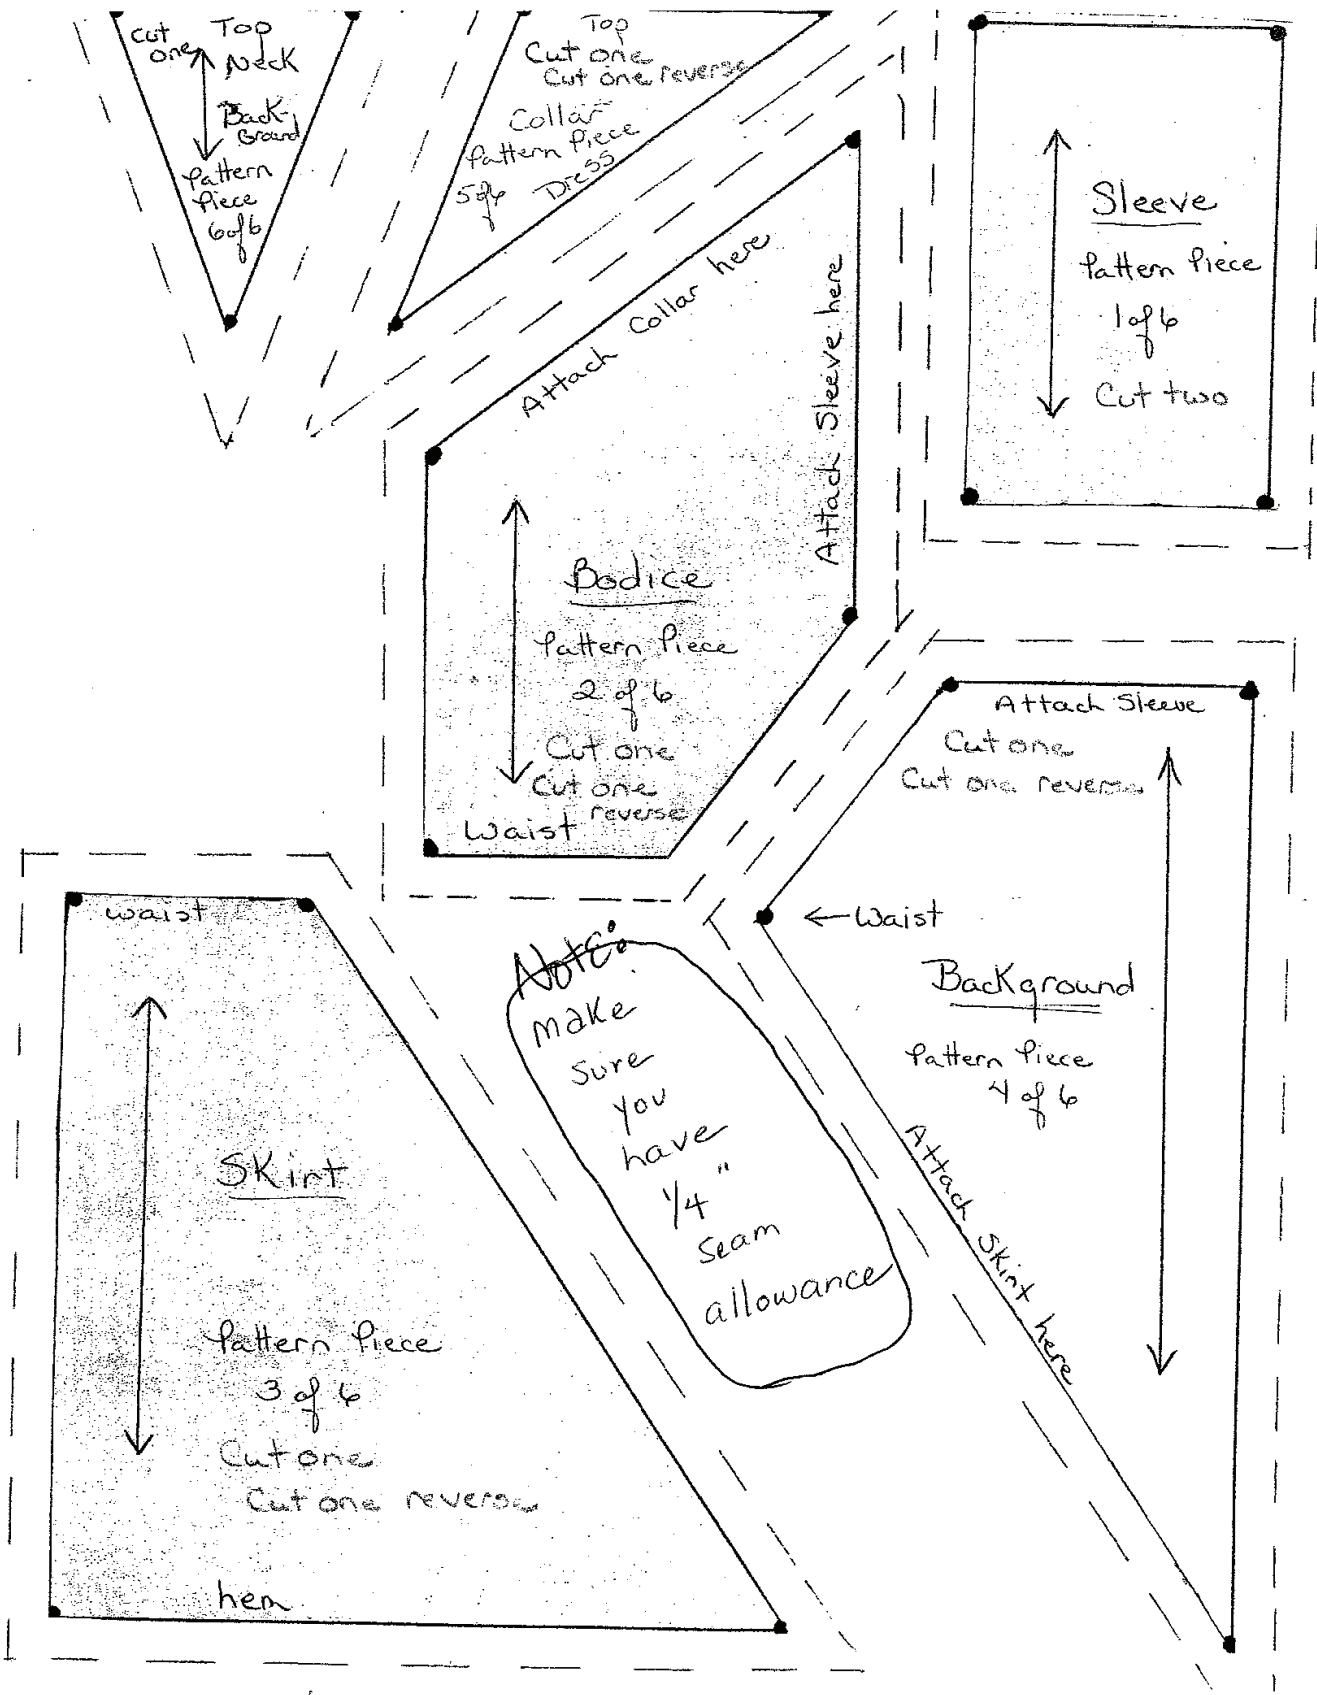 Cut
one
Top
Neck
Back-
Ground
Pattern
Piece
6 of 6
Top
Cut one
Cut one reverse
Collar
Pattern Piece
5 of 6
Dress
Sleeve
Pattern Piece
1 of 6
Cut two
Attach Collar here
Attach Sleeve here
Bodice
Pattern Piece
2 of 6
Cut one
Cut one
reverse
Waist
Attach Sleeve
Cut one
Cut one reverse
←Waist
Background
Pattern Piece
4 of 6
Attach Skirt here
waist
Skirt
Pattern Piece
3 of 6
Cut one
Cut one reverse
hem
Note:
make
sure
you
have
1/4"
seam
allowance